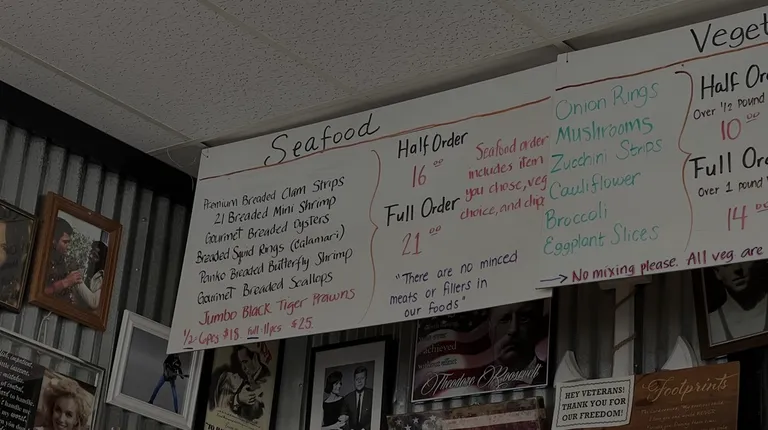 Seafood
Premium Breaded Clam Strips
21 Breaded Mini Shrimp
Gourmet Breaded Oysters
Breaded Squid Rings (Calamari)
Panko Breaded Butterfly Shrimp
Gourmet Breaded Scallops
Jumbo Black Tiger Prawns
1/2-6pcs $18. Full-11pcs $25.
Half Order
16 00
Full Order
21 00
Seafood order
includes item
you chose, veg
choice, and dip
"There are no minced
meats or fillers in
our foods"
Veget
Onion Rings
Mushrooms
Zucchini Strips
Cauliflower
Broccoli
Eggplant Slices
Half Or
Over 1/2 Pound
10 00
Full Or
Over 1 Pound
14 00
→ No mixing please. All veg are
achieved
without effort.
Theodore Roosevelt
HEY VETERANS!
THANK YOU FOR
OUR FREEDOM!
Footprints